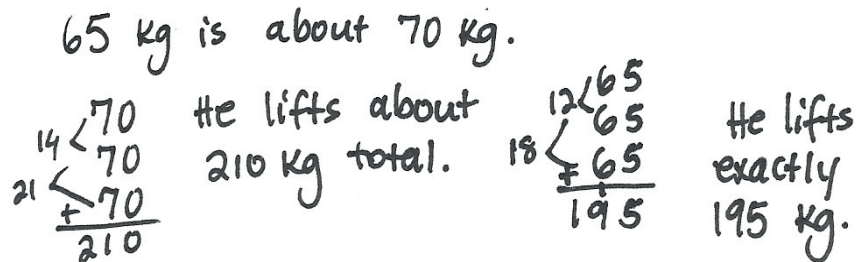 65 kg is about 70 kg.
70
14 < 70
21 < + 70
210
He lifts about
210 kg total.
65
12 < 65
18 < + 65
1
195
He lifts
exactly
195 kg.